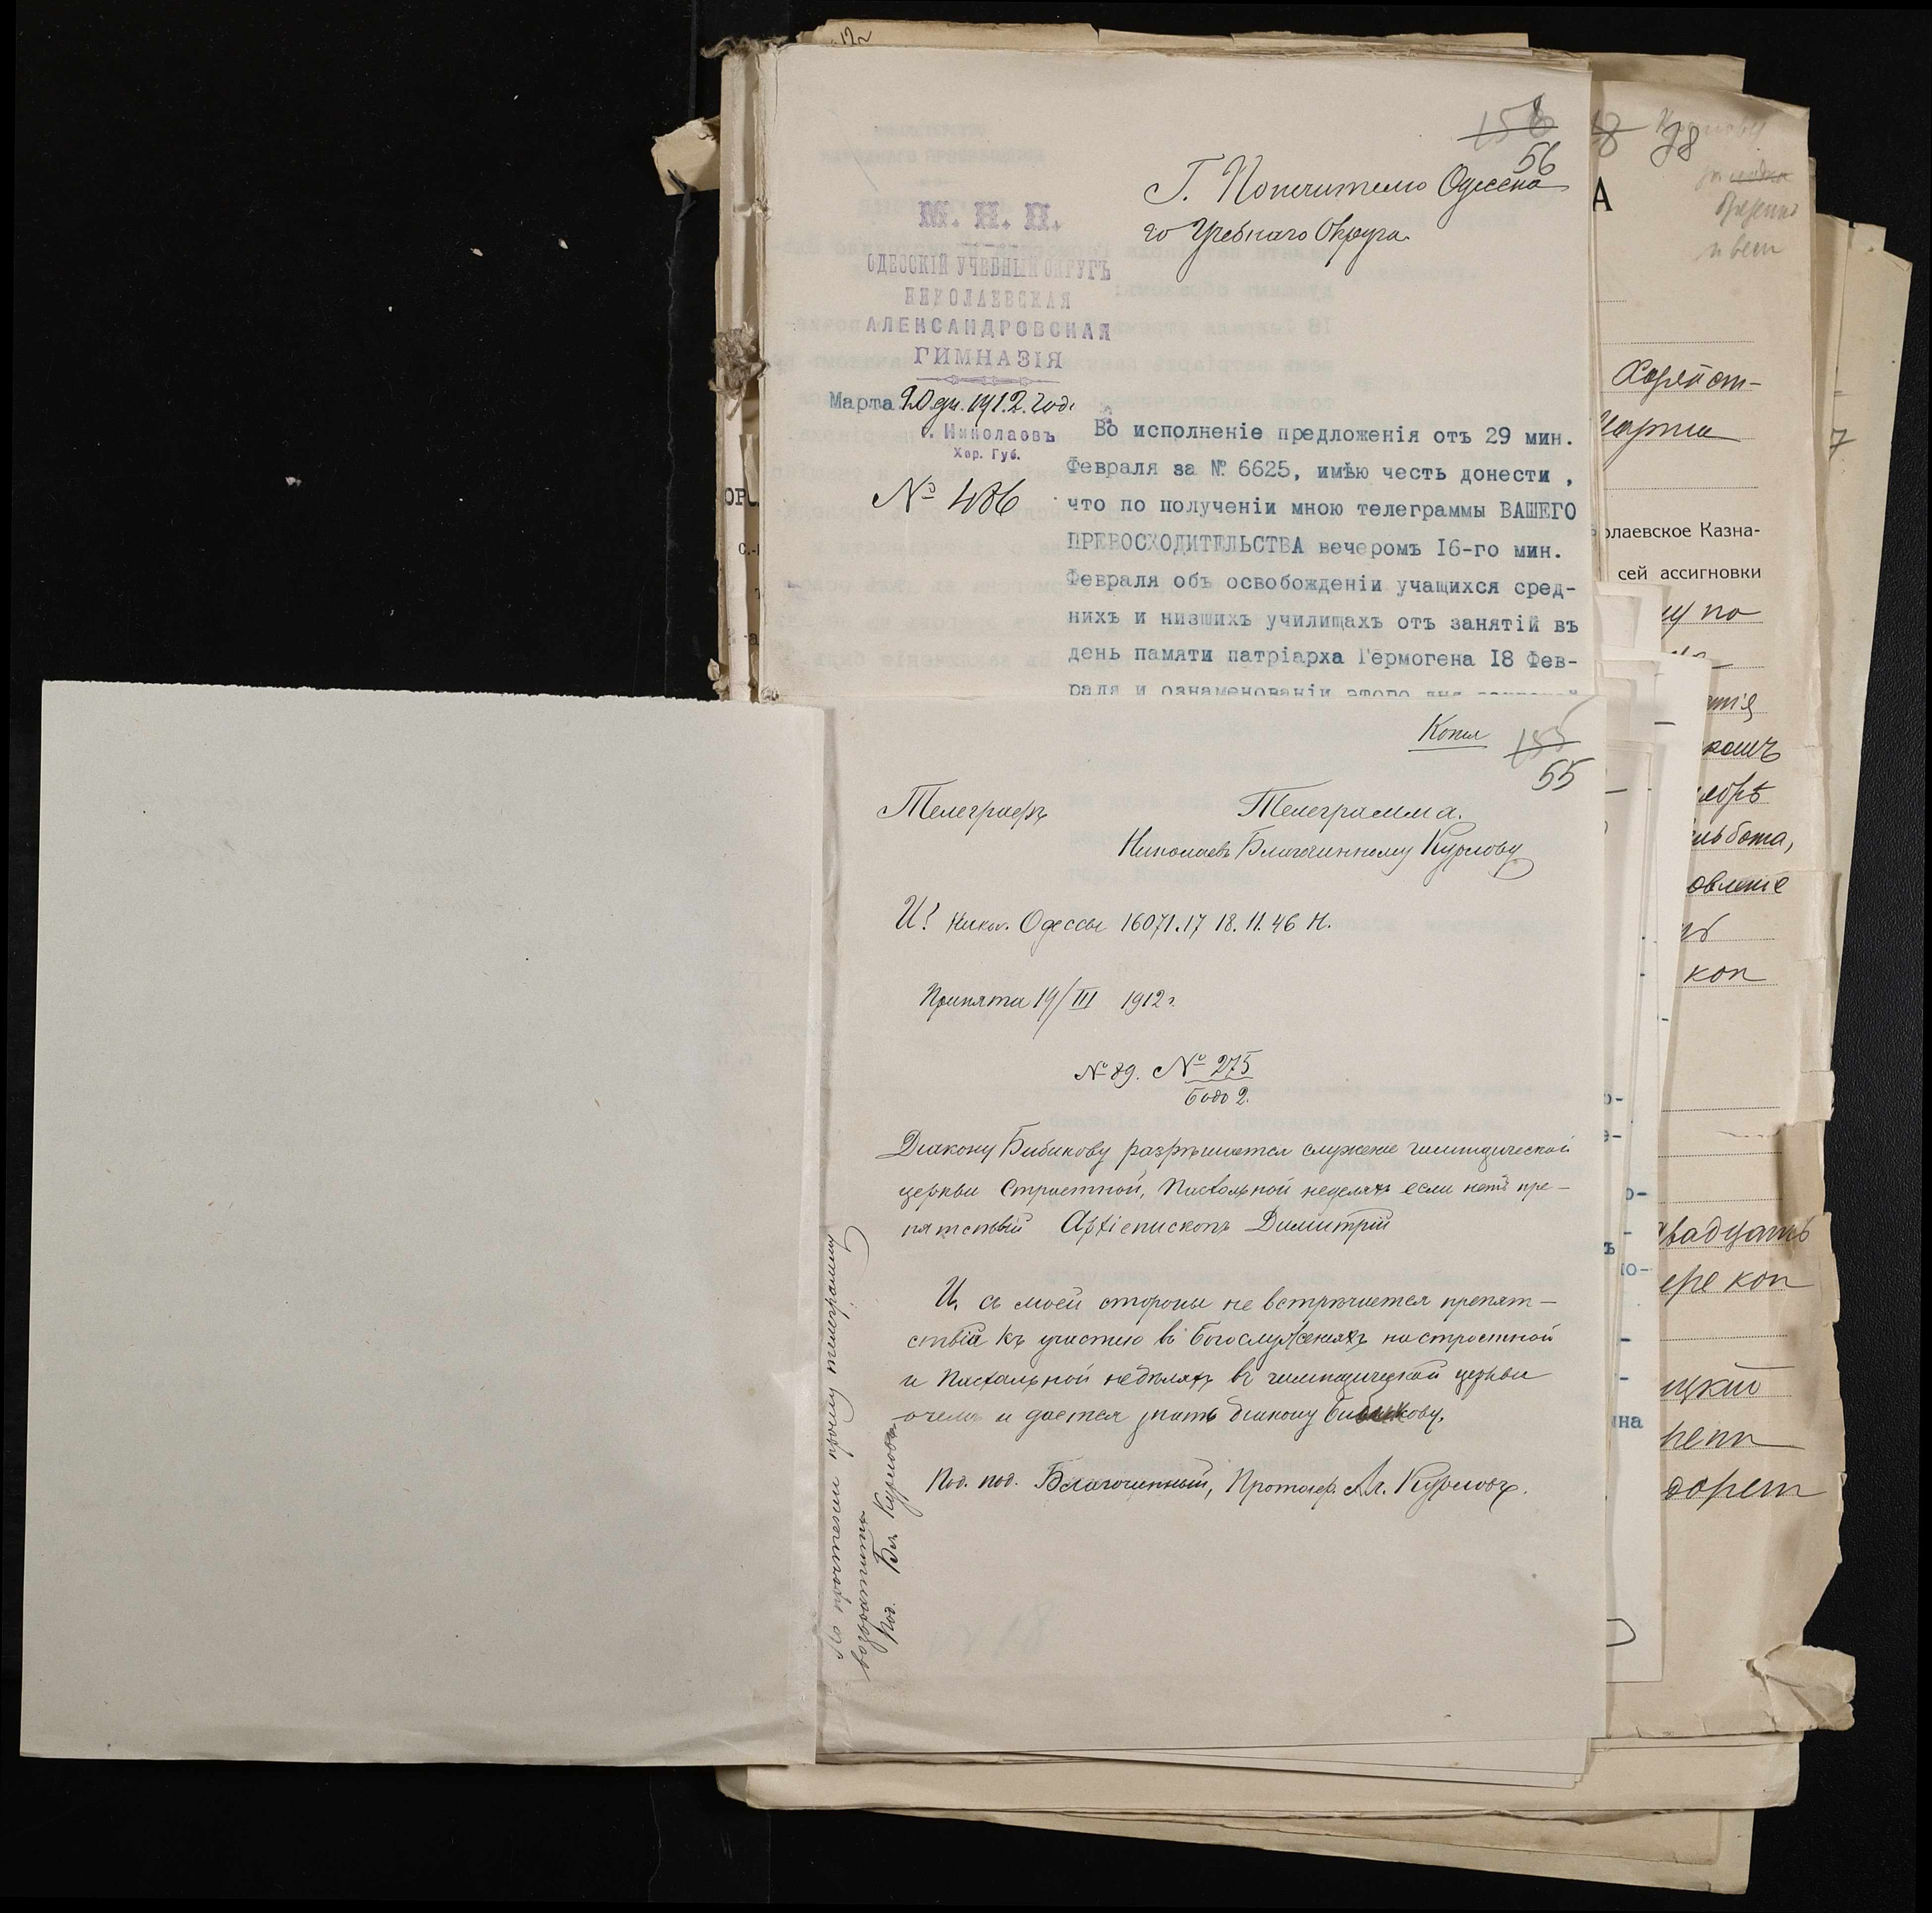 156
56
Г. Попечителю Одесска
го Учебнаго Округа.
М. Н. П.
ОДЕССКІЙ УЧЕБНЫЙ ОКРУГЪ
НИКОЛАЕВСКАЯ
АЛЕКСАНДРОВСКАЯ
ГИМНАЗІЯ
Марта 20 дн. 1912 года
г. Николаевъ
Хер. Губ.
№ 486
Во исполненіе предложенія отъ 29 мин.
Февраля за № 6625, имѣю честь донести ,
что по полученіи мною телеграммы ВАШЕГО
ПРЕВОСХОДИТЕЛЬСТВА вечеромъ I6-го мин.
Февраля объ освобожденіи учащихся сред-
нихъ и низшихъ училищахъ отъ занятій въ
день памяти патріарха Гермогена I8 Фев-
раля и ознаменованіи этого дня
Копія
155
55
Телеграфъ
Телеграмма.
Николаевъ Благочинному Курлову
Из Никол. Одессы 16071.17 18. 11. 46 Н.
Принята 19/III 1912 г.
№ 89. № 275
Бодо 2.
Діакону Бибикову разрѣшается служеніе гимназической
церкви Страстной, Пасхальной неделяхъ если нетъ пре-
пятствій Архіепископъ Димитрій
И, съ моей стороны не встрѣчается препят-
ствія къ участію въ Богослуженіяхъ на страстной
и Пасхальной недѣляхъ въ гимназической церкви
о чемъ и дается знать діакону Бибикову.
Под. под. Благочинный, Протоіер. Ал. Курловъ.
По прочтеніи прошу телеграмму
возвратить
Под. Бл. Курловъ
78
А
Марта
олаевское Казна-
сей ассигновки
у по
овленіе
коп
двадцать
ере коп